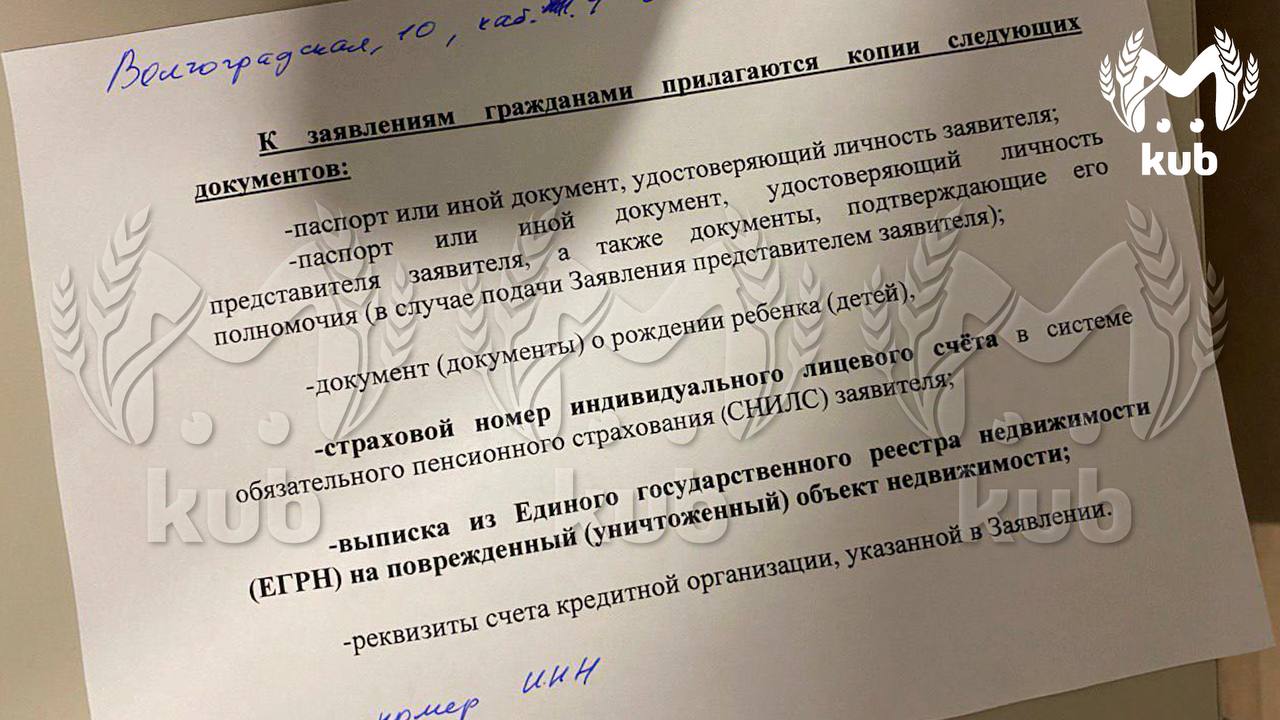 Волгоградская, 10, каб.
К заявлениям гражданами прилагаются копии следующих
документов:
-паспорт или иной документ, удостоверяющий личность заявителя;
-паспорт или иной документ, удостоверяющий личность
представителя заявителя, а также документы, подтверждающие его
полномочия (в случае подачи Заявления представителем заявителя);
-документ (документы) о рождении ребенка (детей),
-страховой номер индивидуального лицевого счёта в системе
обязательного пенсионного страхования (СНИЛС) заявителя;
-выписка из Единого государственного реестра недвижимости
(ЕГРН) на поврежденный (уничтоженный) объект недвижимости;
-реквизиты счета кредитной организации, указанной в Заявлении.
номер ИНН
kub
kub
kub
kub